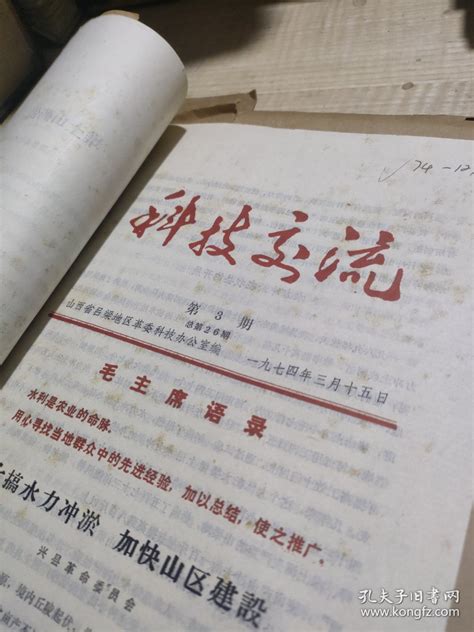 74-12
科技交流
第3期
总第26期
山西省吕梁地区革委科技办公室编
一九七四年三月十五日
毛主席语录
水利是农业的命脉。
用心寻找当地群众中的先进经验，加以总结，使之推广。
搞水力冲淤 加快山区建设
兴县革命委员会
境内丘陵起伏
孔夫子旧书网
www.kongfz.com